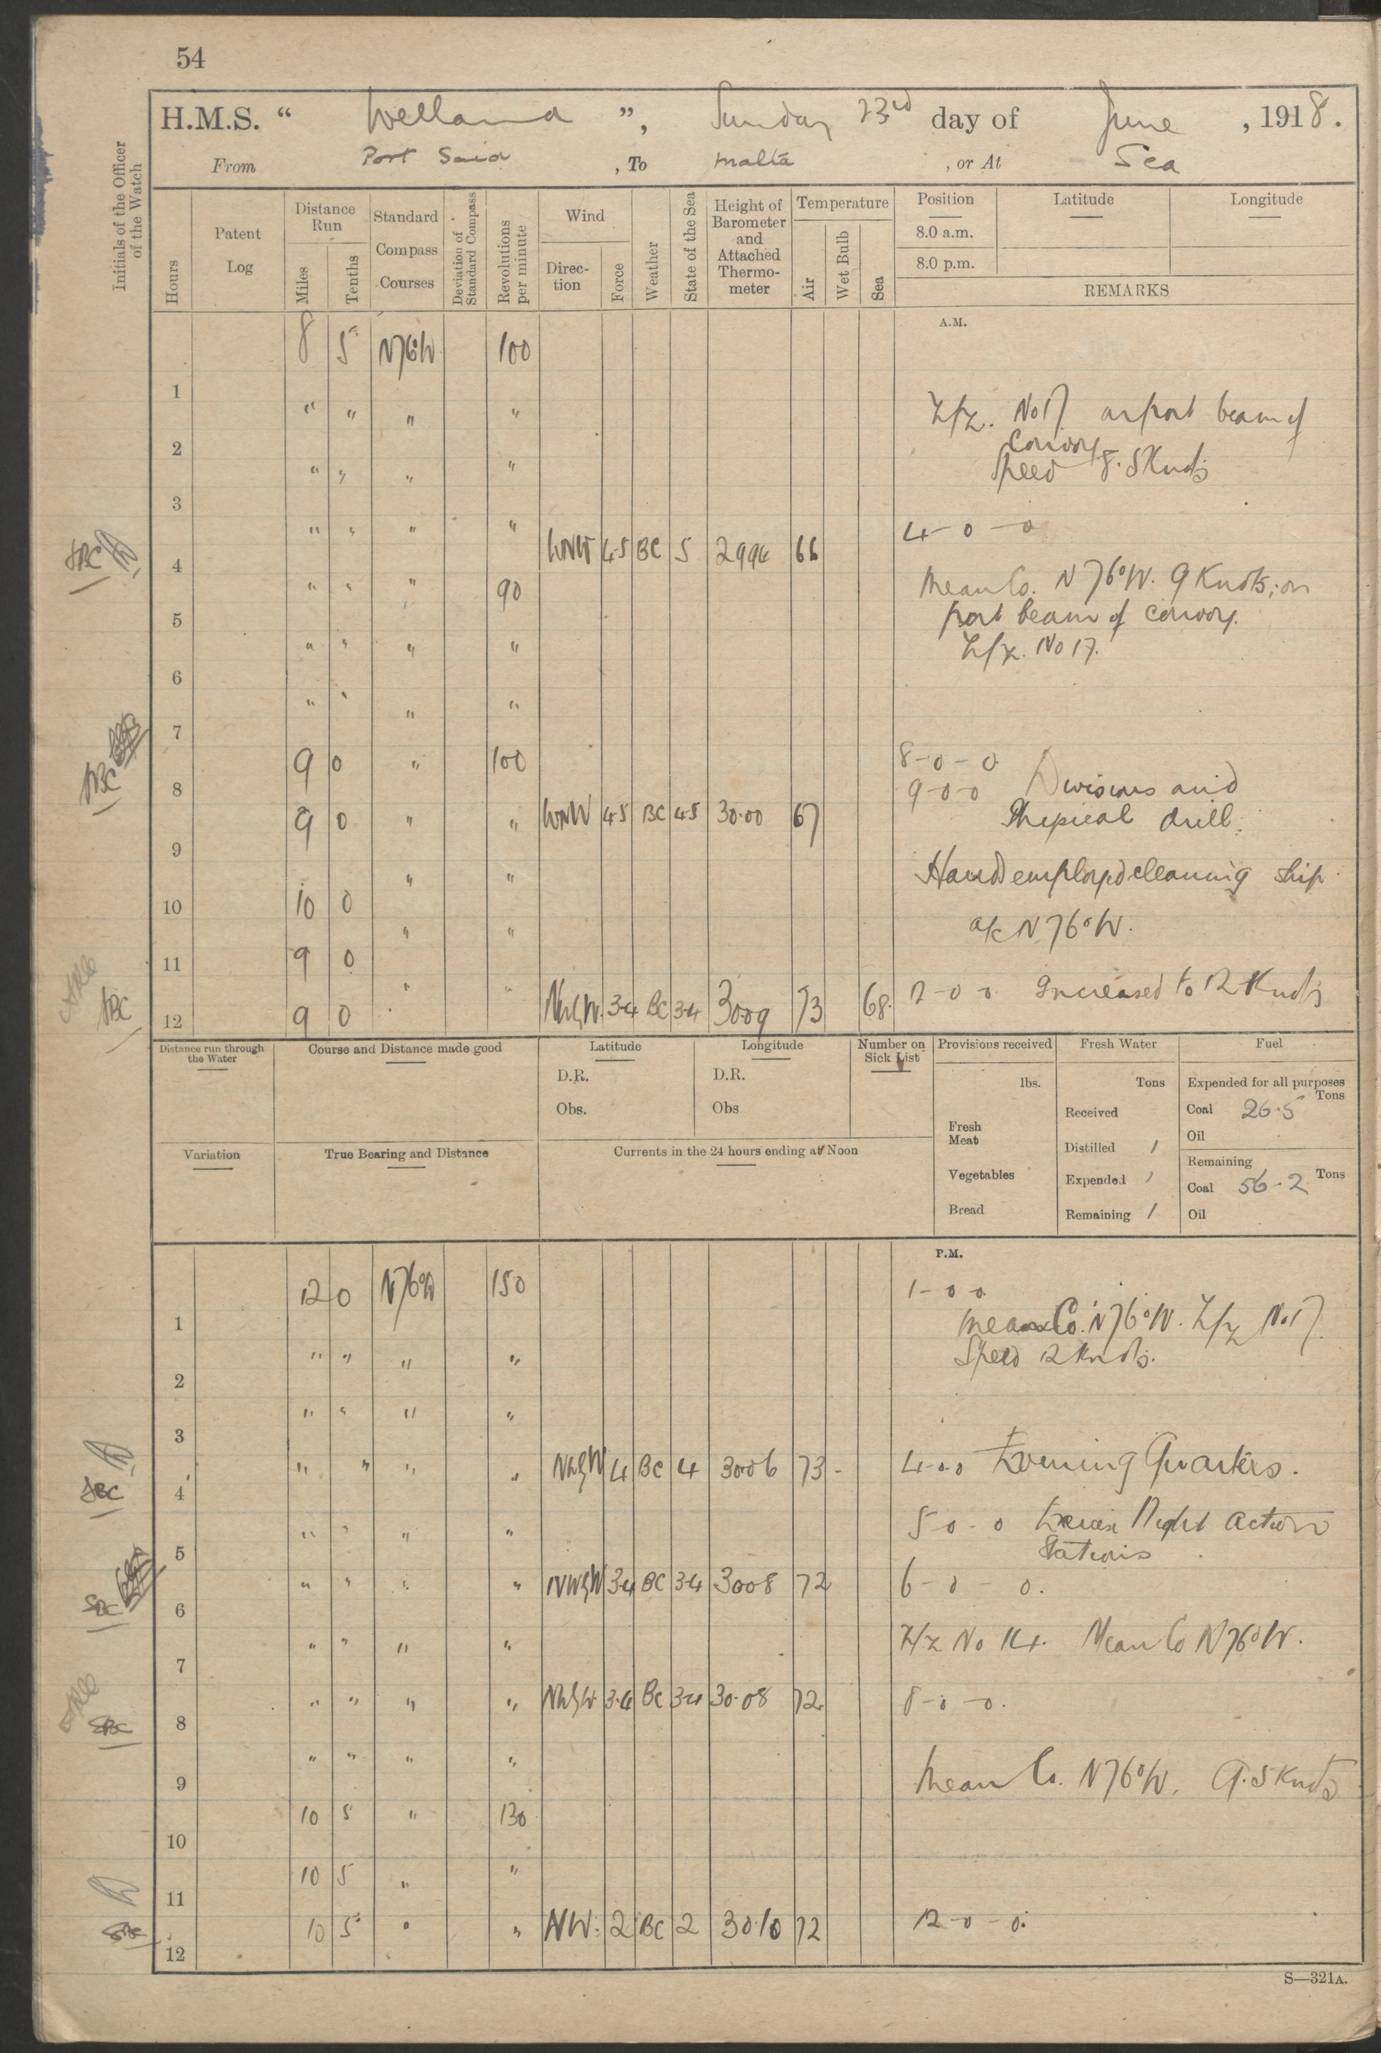 54
H.M.S. “ Welland ”, Sunday 23rd day of June , 1918.
From Port Said , To Malta , or At Sea
Initials of the Officer of the Watch
Hours
Patent Log
Distance Run
Miles
Tenths
Standard Compass Courses
Deviation of Standard Compass
Revolutions per minute
Wind
Direc-tion
Force
Weather
State of the Sea
Height of Barometer and Attached Thermo-meter
Temperature
Air
Wet Bulb
Sea
Position Latitude Longitude
8.0 a.m.
8.0 p.m.
REMARKS
A.M.
8 5 N76°W 100
1
" " " "
Z/z. No 17. on port beam of
Convoy
2
Speed 8.5 Knots
" " " "
3
" " " " WNW 4.5 BC 5 2994 66 4-0-0
4
" " " 90 Mean Co. N 76°W. 9 Knots, on
port beam of convoy.
5
" " " " Z/z. No 17.
6
" " " "
7
9 0 " 100 8-0-0
8
9-0-0 Divisions and
9 0 " " WNW 4.5 BC 4.5 30.00 67 Physical drill.
9
" " Hands employed cleaning ship.
10 10 0
" " a/c N 76°W.
11 9 0
" " NW by W. 3.4 BC 3.4 3009 73 68. 12-0-0 Increased to 12 Knots
12 9 0
Distance run through the Water
Course and Distance made good
Latitude Longitude
D.R. D.R.
Obs. Obs
Number on Sick List
Provisions received
lbs.
Fresh Meat
Vegetables
Bread
Fresh Water
Tons
Received
Distilled 1
Expended 1
Remaining 1
Fuel
Expended for all purposes
Tons
Coal 26.5
Oil
Remaining
Coal 56.2 Tons
Oil
Variation
True Bearing and Distance
Currents in the 24 hours ending at Noon
P.M.
12 0 N76°W 150 1-0-0
1 Mean Co. N 76°W. Z/z No 17.
" " " " Speed 12 Knots.
2
" " " "
3
" " " " NW by W 4 BC 4 3006 73 4-0-0 Evening Quarters.
4
" " " " 5-0-0 Exercise Night Action
5 Stations
" " " " NW by W 3.4 BC 3.4 3008 72 6-0-0.
6
" " " " Z/z No 14. Mean Co N 76°W.
7
" " " " NW by W. 3.4 BC 3.4 30.08 72 8-0-0.
8
" " " " Mean Co. N 76°W. 9.5 Knots
9
10 5 " 130
10
10 5 " "
11
10 5 " " NW. 2 BC 2 30.10 72 12-0-0.
12
S—321A.